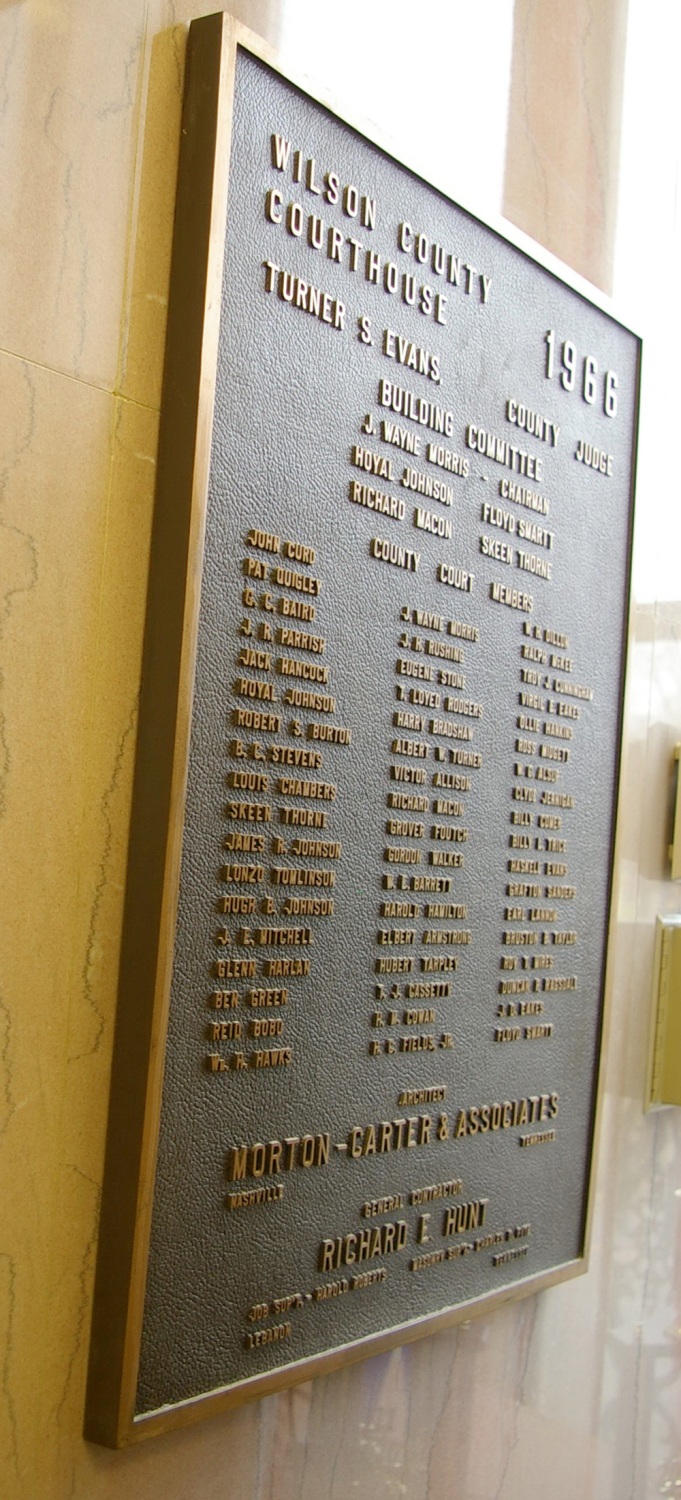 WILSON COUNTY
COURTHOUSE 1966
TURNER S. EVANS, COUNTY JUDGE
BUILDING COMMITTEE
J. WAYNE MORRIS - CHAIRMAN
HOYAL JOHNSON FLOYD SMARTT
RICHARD MACON SKEEN THORNE
COUNTY COURT MEMBERS
JOHN CORD
PAT QUIGLEY
C. C. BAIRD
J. R. PARRISH
JACK HANCOCK
HOYAL JOHNSON
ROBERT S. BURTON
B. C. STEVENS
LOUIS CHAMBERS
SKEEN THORNE
JAMES R. JOHNSON
LONZO TOMLINSON
HUGH B. JOHNSON
J. E. MITCHELL
GLENN HARLAN
BEN GREEN
REID BOBO
WM. H. HAWKS
J. WAYNE MORRIS
J. H. RUSHING
EUGENE STONE
T. LOYED RODGERS
HARRY BRADSHAW
ALBERT W. TURNER
VICTOR ALLISON
RICHARD MACON
GROVER FOUTCH
GORDON WALKER
W. E. BARRETT
HAROLD HAMILTON
ELBERT ARMSTRONG
HUBERT TARPLEY
T. J. GASSETT
H. M. COWAN
H. B. FIELDS, JR.
DILLON
RALPH MCKEE
TROY J CUNNINGHAM
VIRGIL B. EAKES
OLLIE HANKINS
ROSS MIDGETT
ALSUP
CLYDE JENNIGAN
BILLY COMER
BILLY TRICE
HASKELL EVANS
GRAFTON SANDERS
EARL LANNOM
BRUSTON B. TAYLOR
ROY T. WIRES
DUNCAN RAGSDALE
J. D. EAKES
FLOYD SMARTT
ARCHITECT
MORTON-CARTER & ASSOCIATES
NASHVILLE TENNESSEE
GENERAL CONTRACTOR
RICHARD E HUNT
JOB SUP'T. - HAROLD ROBERTS MASONRY SUP'T.- CHARLES D. PATE
LEBANON TENNESSEE